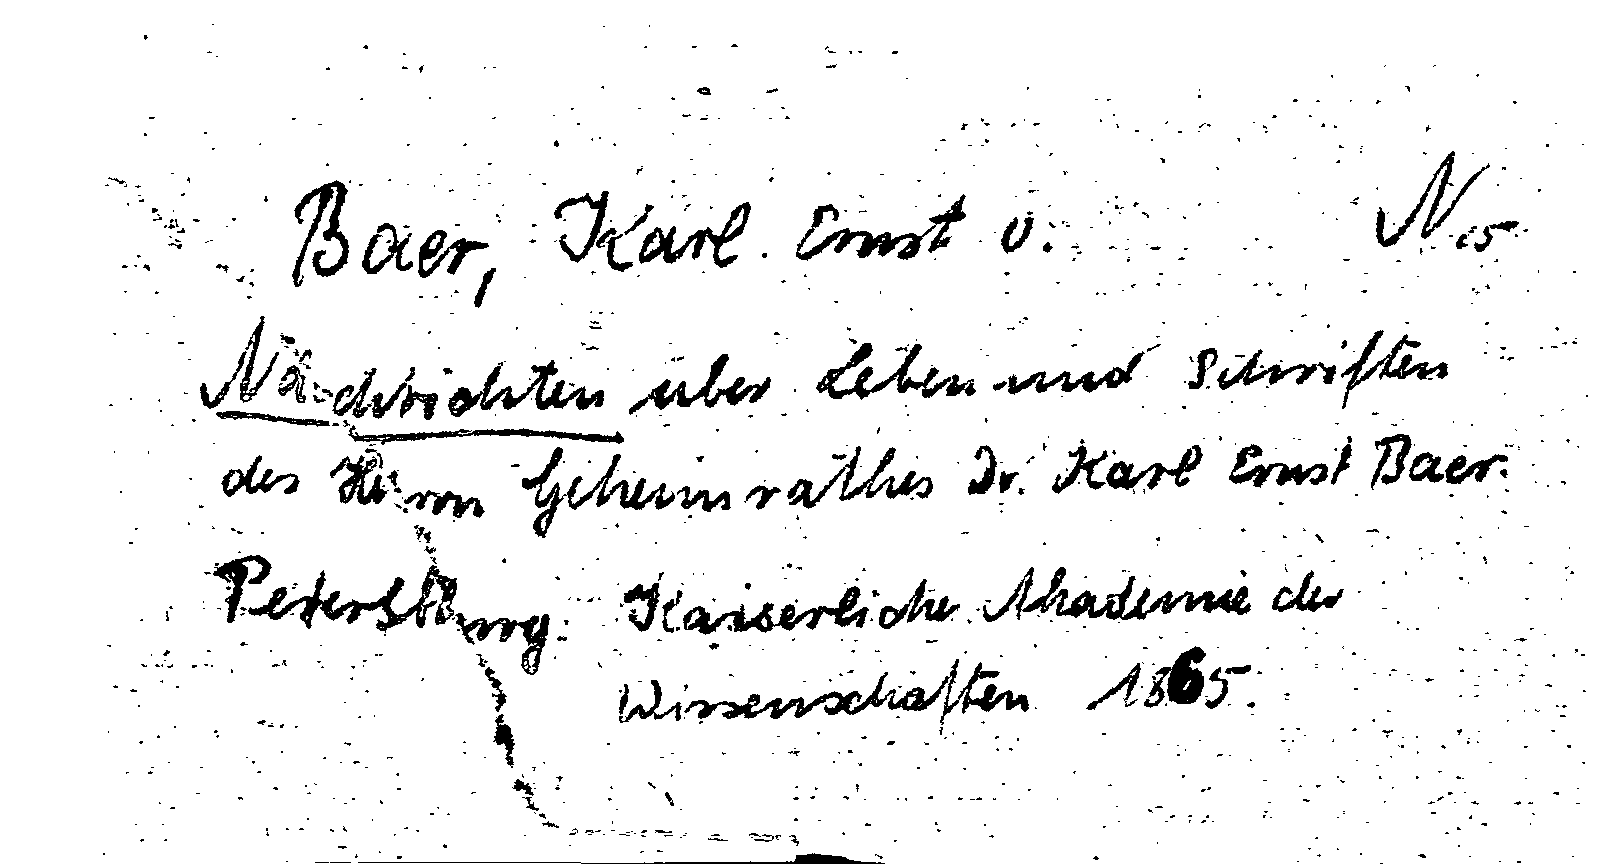 Baer, Karl Ernst v. N 15
Nachrichten über Leben und Schriften
des Herrn Geheimrathes Dr. Karl Ernst Baer.
Petersburg: Kaiserliche Akademie der
Wissenschaften 1865.